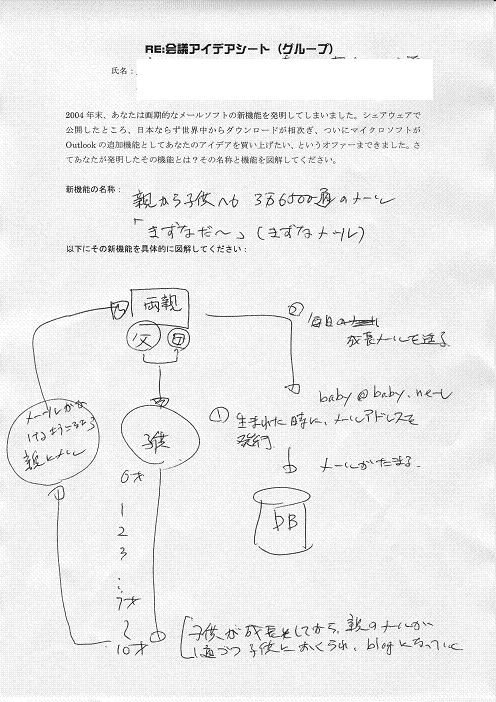 RE:会議アイデアシート（グループ）
氏名：
2004 年末、あなたは画期的なメールソフトの新機能を発明してしまいました。シェアウェアで
公開したところ、日本ならず世界中からダウンロードが相次ぎ、ついにマイクロソフトが
Outlook の追加機能としてあなたのアイデアを買い上げたい、というオファーまできました。さ
てあなたが発明したその機能とは？その名称と機能を図解してください。
新機能の名称：
親から子供への 3万6500通のメール
「きずなだ〜」（きずなメール）
以下にその新機能を具体的に図解してください：
両親
父 母
② 毎日の
成長メールを送る
baby@baby.ne
① 生まれた時に、メールアドレスを
発行
メールがたまる
DB
メールがか
けるようになる
親にメール
子供
0才
1
2
3
7才
10才
子供が成長してから、親のメールが
1通づつ子供におくられ、blogになっていく